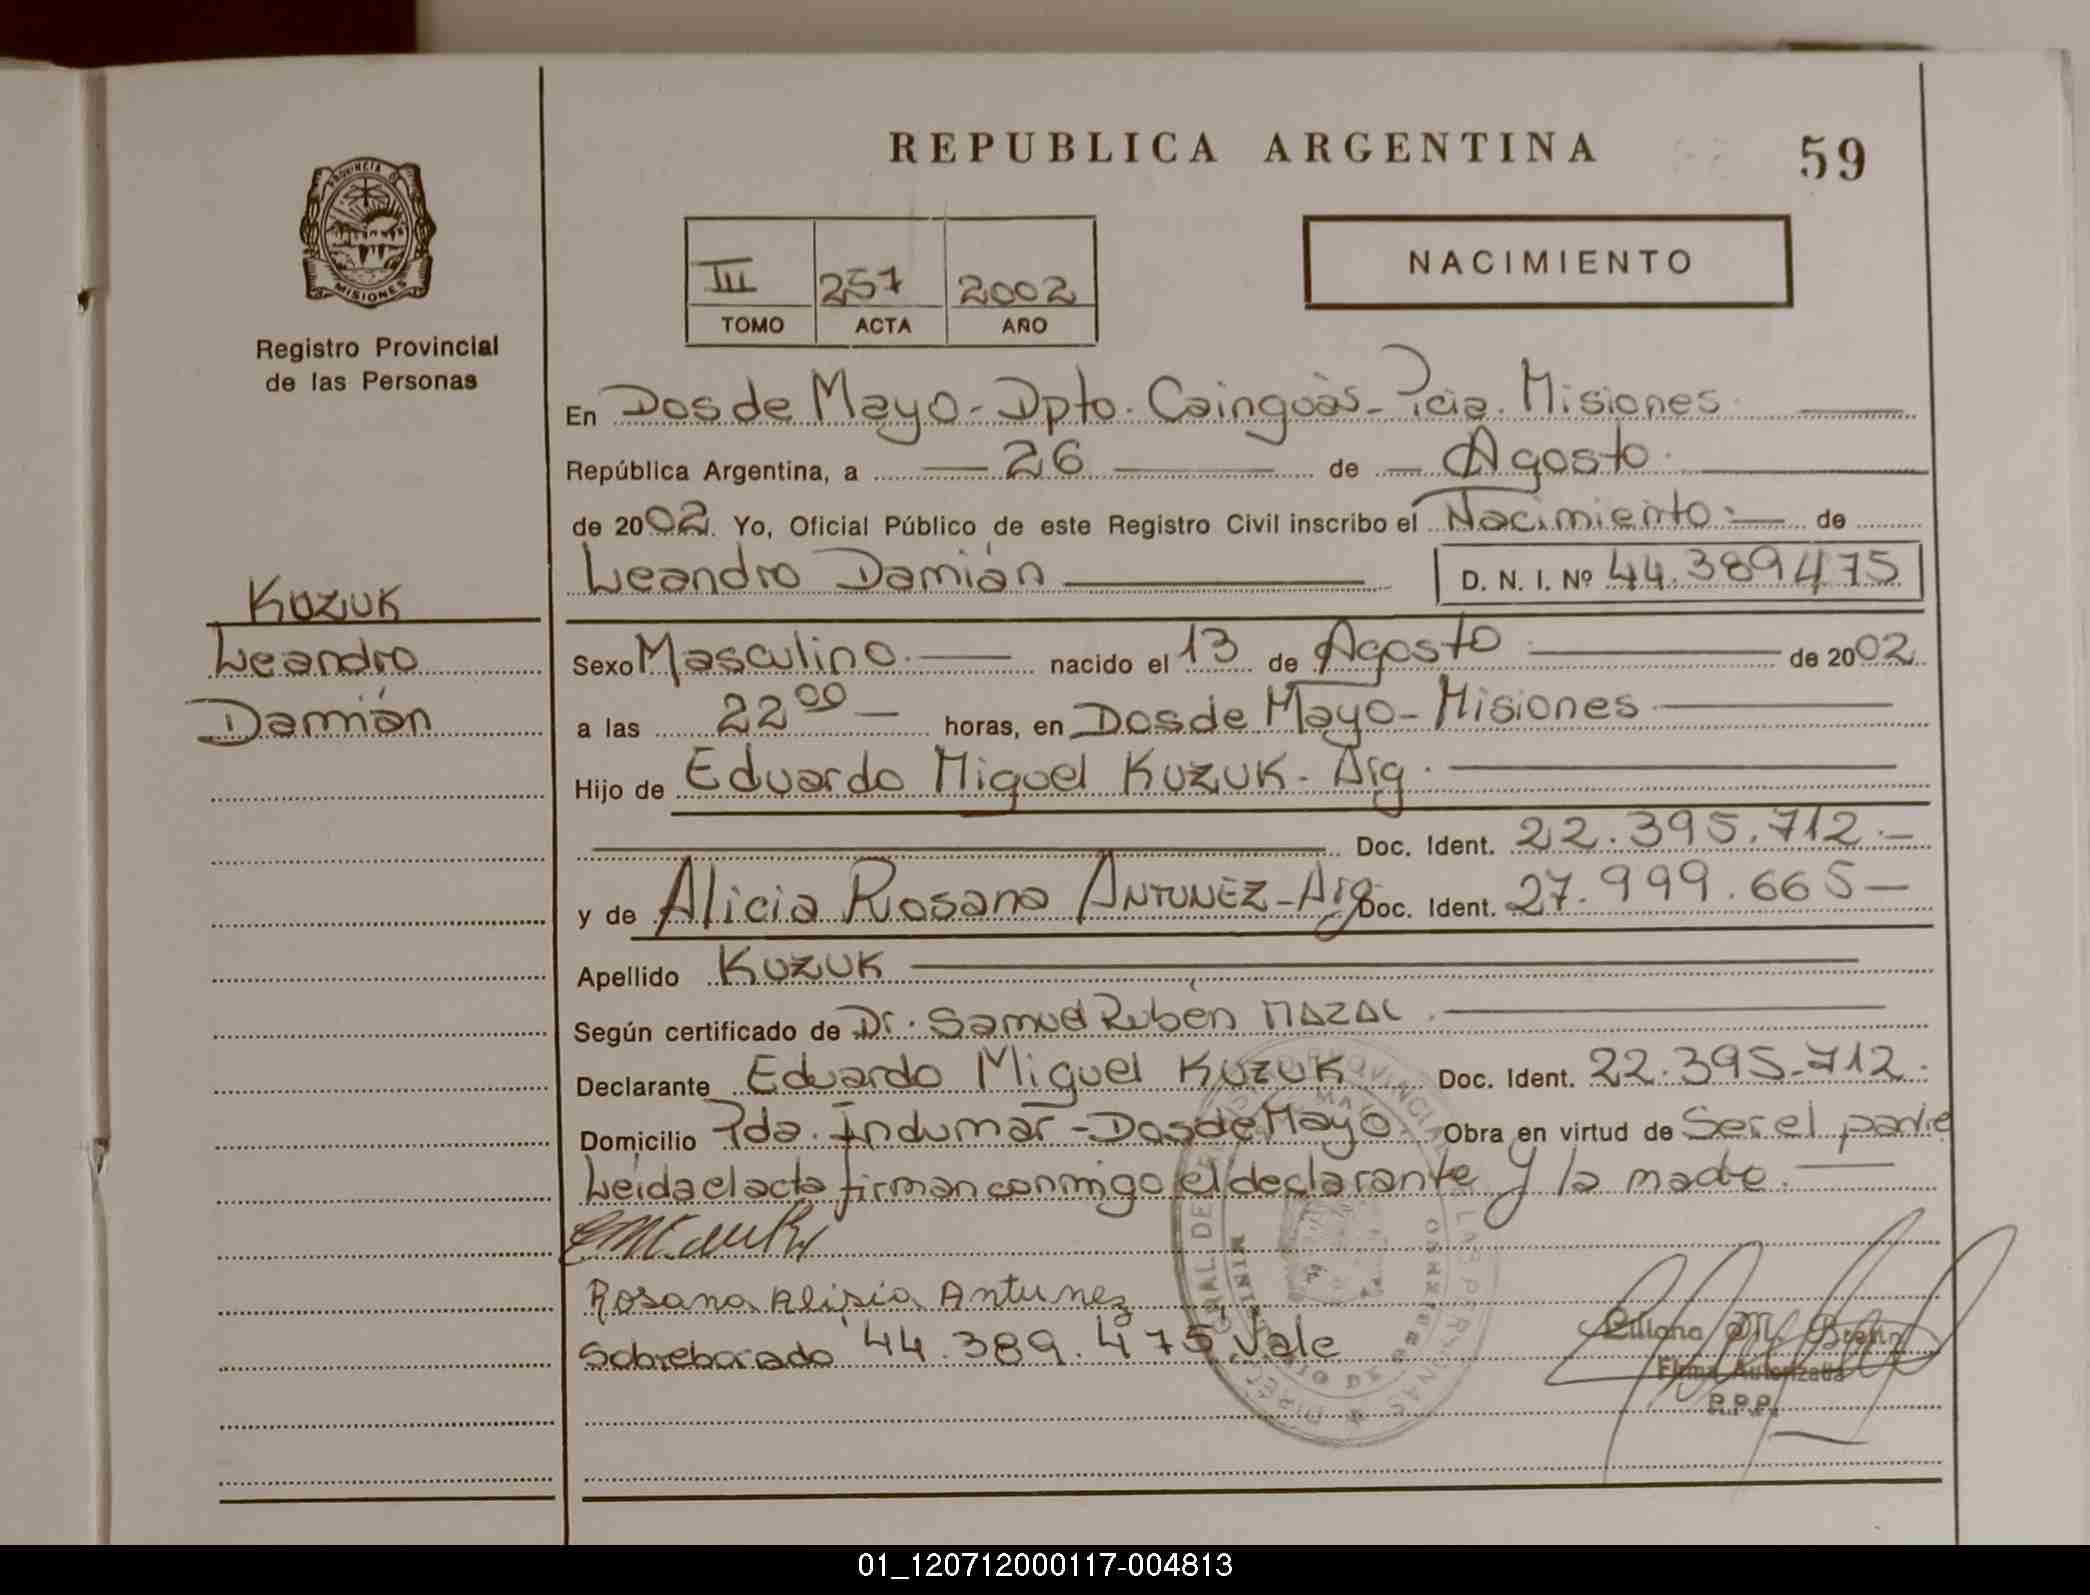 REPUBLICA ARGENTINA
59
PROVINCIA DE
MISIONES
Registro Provincial
de las Personas
III 257 2002
TOMO ACTA AÑO
NACIMIENTO
En Dos de Mayo - Dpto. Cainguás - Pcia. Misiones
República Argentina, a 26 de Agosto
de 2002. Yo, Oficial Público de este Registro Civil inscribo el Nacimiento de
Leandro Damián D. N. I. Nº 44.389475
Kuzuk
Leandro
Damián
Sexo Masculino nacido el 13 de Agosto de 2002
a las 22 00 horas, en Dos de Mayo - Misiones
Hijo de Eduardo Miguel Kuzuk - Arg.
Doc. Ident. 22.395.712.-
y de Alicia Rosana ANTUNEZ - Arg. Doc. Ident. 27.999.665-
Apellido Kuzuk
Según certificado de Dr. Samuel Rubén MAZAL
Declarante Eduardo Miguel Kuzuk Doc. Ident. 22.395.712.
Domicilio Pda. Indumar - Dos de Mayo Obra en virtud de Ser el padre
Leída el acta firman conmigo el declarante y la madre.
Rosana Alisia Antunez
Sobreborado 44.389.475 Vale
Firma Autorizada
R.P.P.
01_120712000117-004813